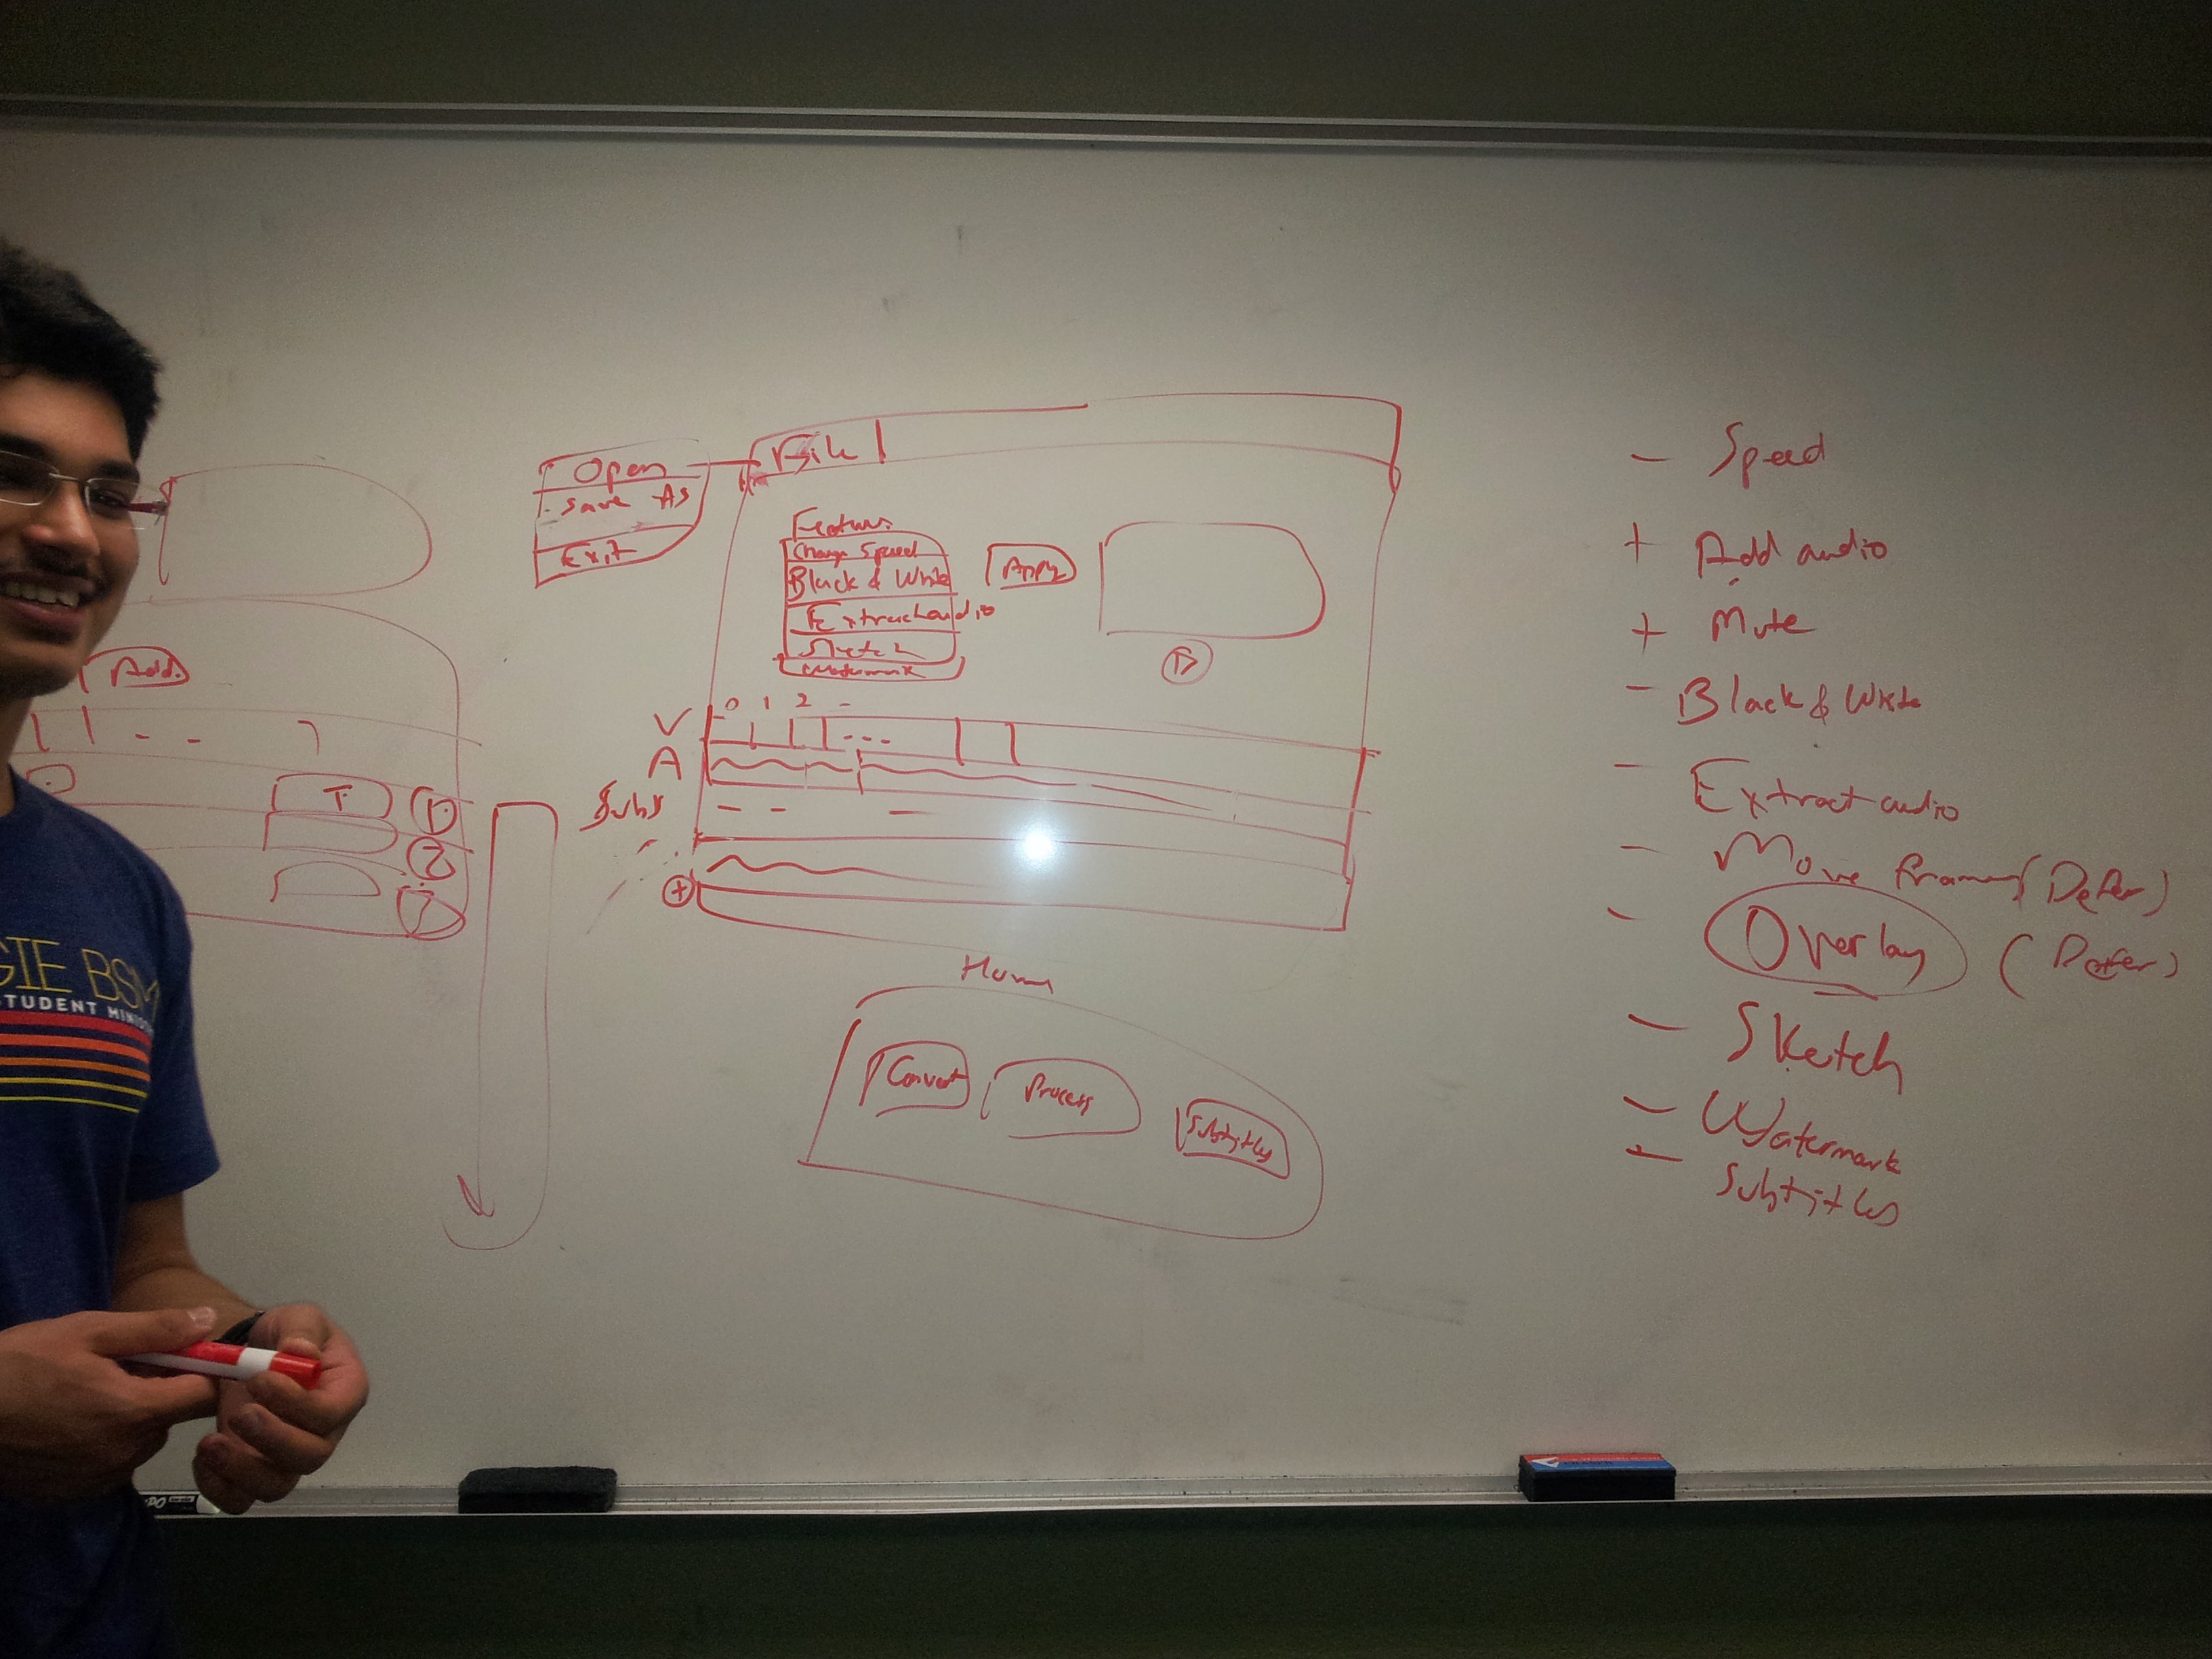 Open
File
Save As
Exit
Features
Change Speed
Black & White
Extract audio
Sketch
Watermark
Apply
Add
0 1 2 -
V
A
Subs
T
Home
Convert
Process
Subtitles
- Speed
+ Add audio
+ Mute
- Black & White
- Extract audio
- Move frames (Defer)
- Overlay (Defer)
- Sketch
- Watermark
- Subtitles
GIE BSM
STUDENT MINIS